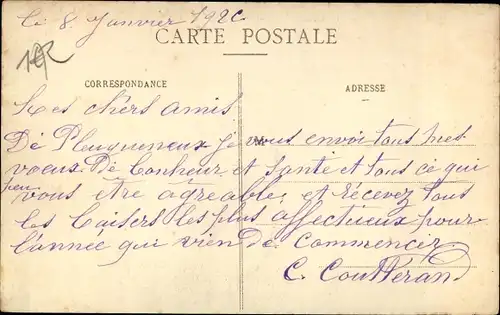 le 8 Janvier 1920
CARTE POSTALE
CORRESPONDANCE
ADRESSE
Mes chers amis
De Pleugueneux je vous envoi tous mes
voeux De bonheur et Santé et tous ce qui
peu vous etre agreable, et récevez tous
les baisers les plus affectueux pour
l'année qui vien de commencer.
C. Coutterand